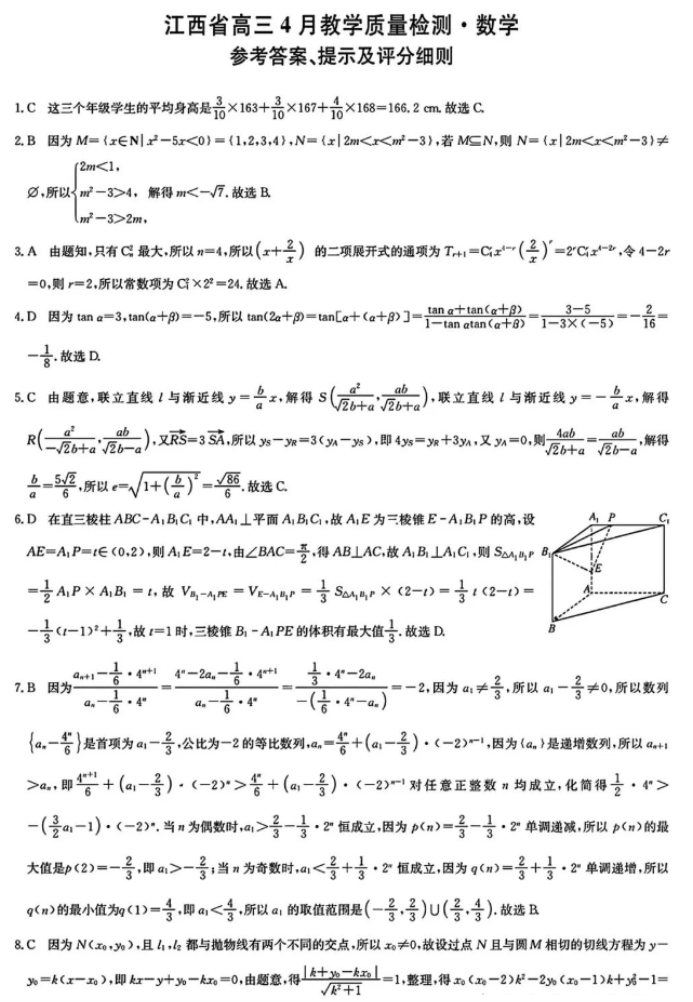 江西省高三4月教学质量检测·数学
参考答案、提示及评分细则
1. C 这三个年级学生的平均身高是3/10×163+3/10×167+4/10×168=166.2 cm. 故选 C.
2. B 因为 M={x∈N|x²-5x<0}={1,2,3,4},N={x|2m<x<m²-3},若 M⊆N,则 N={x|2m<x<m²-3}≠
∅,所以{2m<1, m²-3>4, m²-3>2m, 解得 m<-√7. 故选 B.
3. A 由题知,只有 Cₙ² 最大,所以 n=4,所以(x+2/x) 的二项展开式的通项为 Tᵣ₊₁=C₄ʳx⁴⁻ʳ(2/x)ʳ=2ʳC₄ʳx⁴⁻²ʳ,令 4-2r
=0,则 r=2,所以常数项为 C₄²×2²=24. 故选 A.
4. D 因为 tan α=3,tan(α+β)=-5,所以 tan(2α+β)=tan[α+(α+β)]=(tan α+tan(α+β))/(1-tan αtan(α+β))=(3-5)/(1-3×(-5))=-2/16=
-1/8. 故选 D.
5. C 由题意,联立直线 l 与渐近线 y=b/a x,解得 S(a²/(√2b+a),ab/(√2b+a)),联立直线 l 与渐近线 y=-b/a x,解得
R(a²/(-√2b+a),ab/(√2b-a)),又RS→=3SA→,所以 yS-yR=3(yA-yS),即 4yS=yR+3yA,又 yA=0,则4ab/(√2b+a)=ab/(√2b-a),解得
b/a=5√2/6,所以 e=√(1+(b/a)²)=√86/6. 故选 C.
6. D 在直三棱柱 ABC-A₁B₁C₁ 中,AA₁⊥平面 A₁B₁C₁,故 A₁E 为三棱锥 E-A₁B₁P 的高,设
AE=A₁P=t∈(0,2),则 A₁E=2-t,由∠BAC=π/2,得 AB⊥AC,故 A₁B₁⊥A₁C₁,则 S△A₁B₁P
=1/2 A₁P×A₁B₁=t,故 V B₁-A₁PE=V E-A₁B₁P=1/3 S△A₁B₁P×(2-t)=1/3 t(2-t)=
-1/3(t-1)²+1/3,故 t=1 时,三棱锥 B₁-A₁PE 的体积有最大值1/3. 故选 D.
A₁ P C₁
B₁
E
A
C
B
7. B 因为(aₙ₊₁-1/6·4ⁿ⁺¹)/(aₙ-1/6·4ⁿ)=(4ⁿ-2aₙ-1/6·4ⁿ⁺¹)/(aₙ-1/6·4ⁿ)=(1/3·4ⁿ-2aₙ)/(-(1/6·4ⁿ-aₙ))=-2,因为 a₁≠2/3,所以 a₁-2/3≠0,所以数列
{aₙ-4ⁿ/6}是首项为 a₁-2/3,公比为-2 的等比数列,aₙ=4ⁿ/6+(a₁-2/3)·(-2)ⁿ⁻¹,因为{aₙ}是递增数列,所以 aₙ₊₁
>aₙ,即4ⁿ⁺¹/6+(a₁-2/3)·(-2)ⁿ>4ⁿ/6+(a₁-2/3)·(-2)ⁿ⁻¹ 对任意正整数 n 均成立,化简得1/2·4ⁿ>
-(3/2a₁-1)·(-2)ⁿ. 当 n 为偶数时,a₁>2/3-1/3·2ⁿ 恒成立,因为 p(n)=2/3-1/3·2ⁿ 单调递减,所以 p(n)的最
大值是p(2)=-2/3,即 a₁>-2/3;当 n 为奇数时,a₁<2/3+1/3·2ⁿ 恒成立,因为 q(n)=2/3+1/3·2ⁿ 单调递增,所以
q(n)的最小值为q(1)=4/3,即 a₁<4/3,所以 a₁ 的取值范围是(-2/3,2/3)∪(2/3,4/3). 故选 B.
8. C 因为 N(x₀,y₀),且 l₁,l₂ 都与抛物线有两个不同的交点,所以 x₀≠0,故设过点 N 且与圆 M 相切的切线方程为 y-
y₀=k(x-x₀),即 kx-y+y₀-kx₀=0,由题意,得|k+y₀-kx₀|/√(k²+1)=1,整理,得 x₀(x₀-2)k²-2y₀(x₀-1)k+y₀²-1=